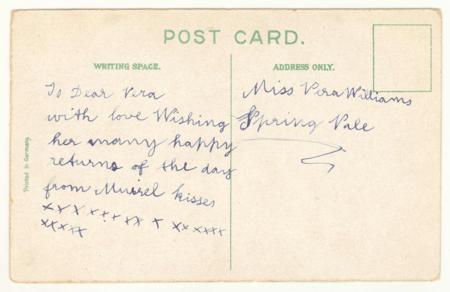 POST CARD.
WRITING SPACE.
To Dear Vera
with love Wishing
her many happy
returns of the day
from Muirel kisses
x x x x x x x x x x x x x x x
x x x x x
ADDRESS ONLY.
Miss Vera Williams
Spring Vale
Printed in Germany.